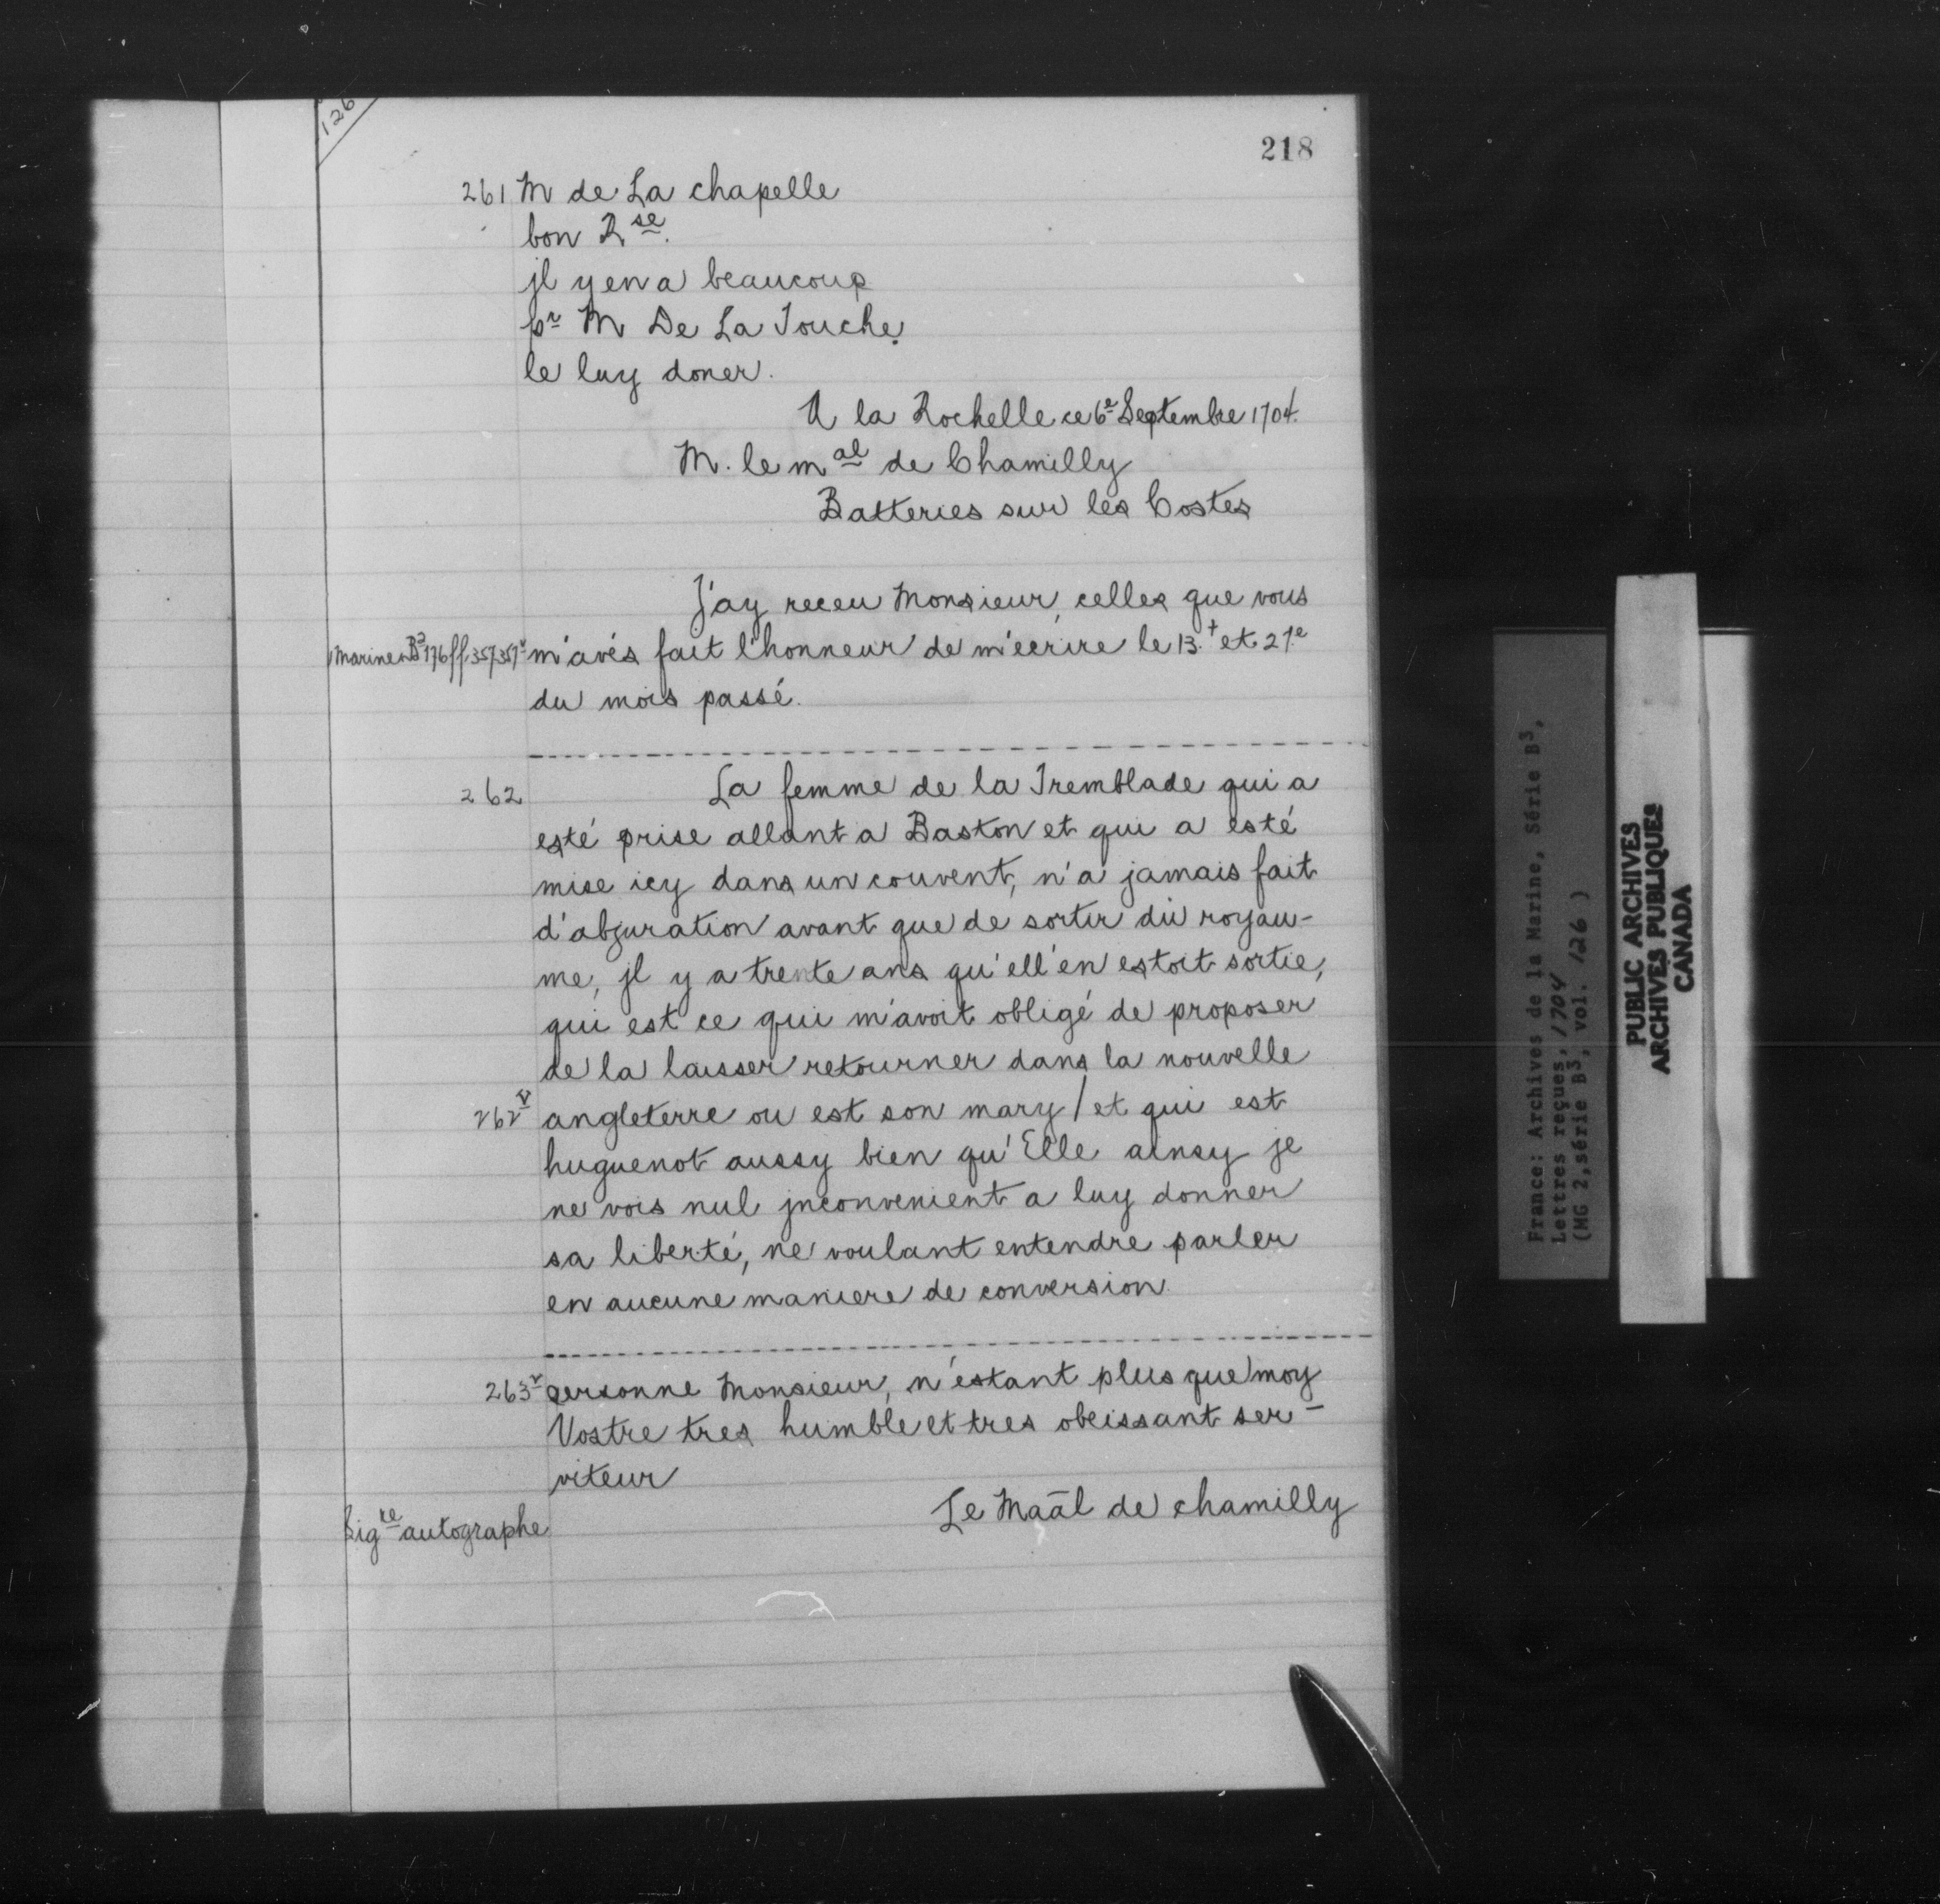 126
218
261 M de La chapelle
bon Rse.
jl y en a beaucoup
pr M De La Touche.
le luy doner.
A la Rochelle ce 6e Septembre 1704.
M. le mal de Chamilly
Batteries sur les Costes
J'ay receu Monsieur, celles que vous
m'avés fait l'honneur de m'écrire le 13.+ et 27e
du mois passé.
262 La femme de la Tremblade qui a
esté prise allant a Baston et qui a esté
mise icy dans un couvent, n'a jamais fait
d'abjuration avant que de sortir du royau-
me, jl y a trente ans qu'ell'en estoit sortie,
qui est ce qui m'avoit obligé de proposer
de la laisser retourner dans la nouvelle
262v angleterre ou est son mary / et qui est
huguenot aussy bien qu'Elle ainsy je
ne vois nul jnconvenient a luy donner
sa liberté, ne voulant entendre parler
en aucune maniere de conversion.
263v personne Monsieur, n'éstant plus que moy
Vostre tres humble et tres obeissant ser-
viteur
Le Maāl de chamilly
Sigre autographe
France: Archives de la Marine, Série B3,
Lettres reçues, 1704
(MG 2, série B3, vol. 126 )
PUBLIC ARCHIVES
ARCHIVES PUBLIQUES
CANADA